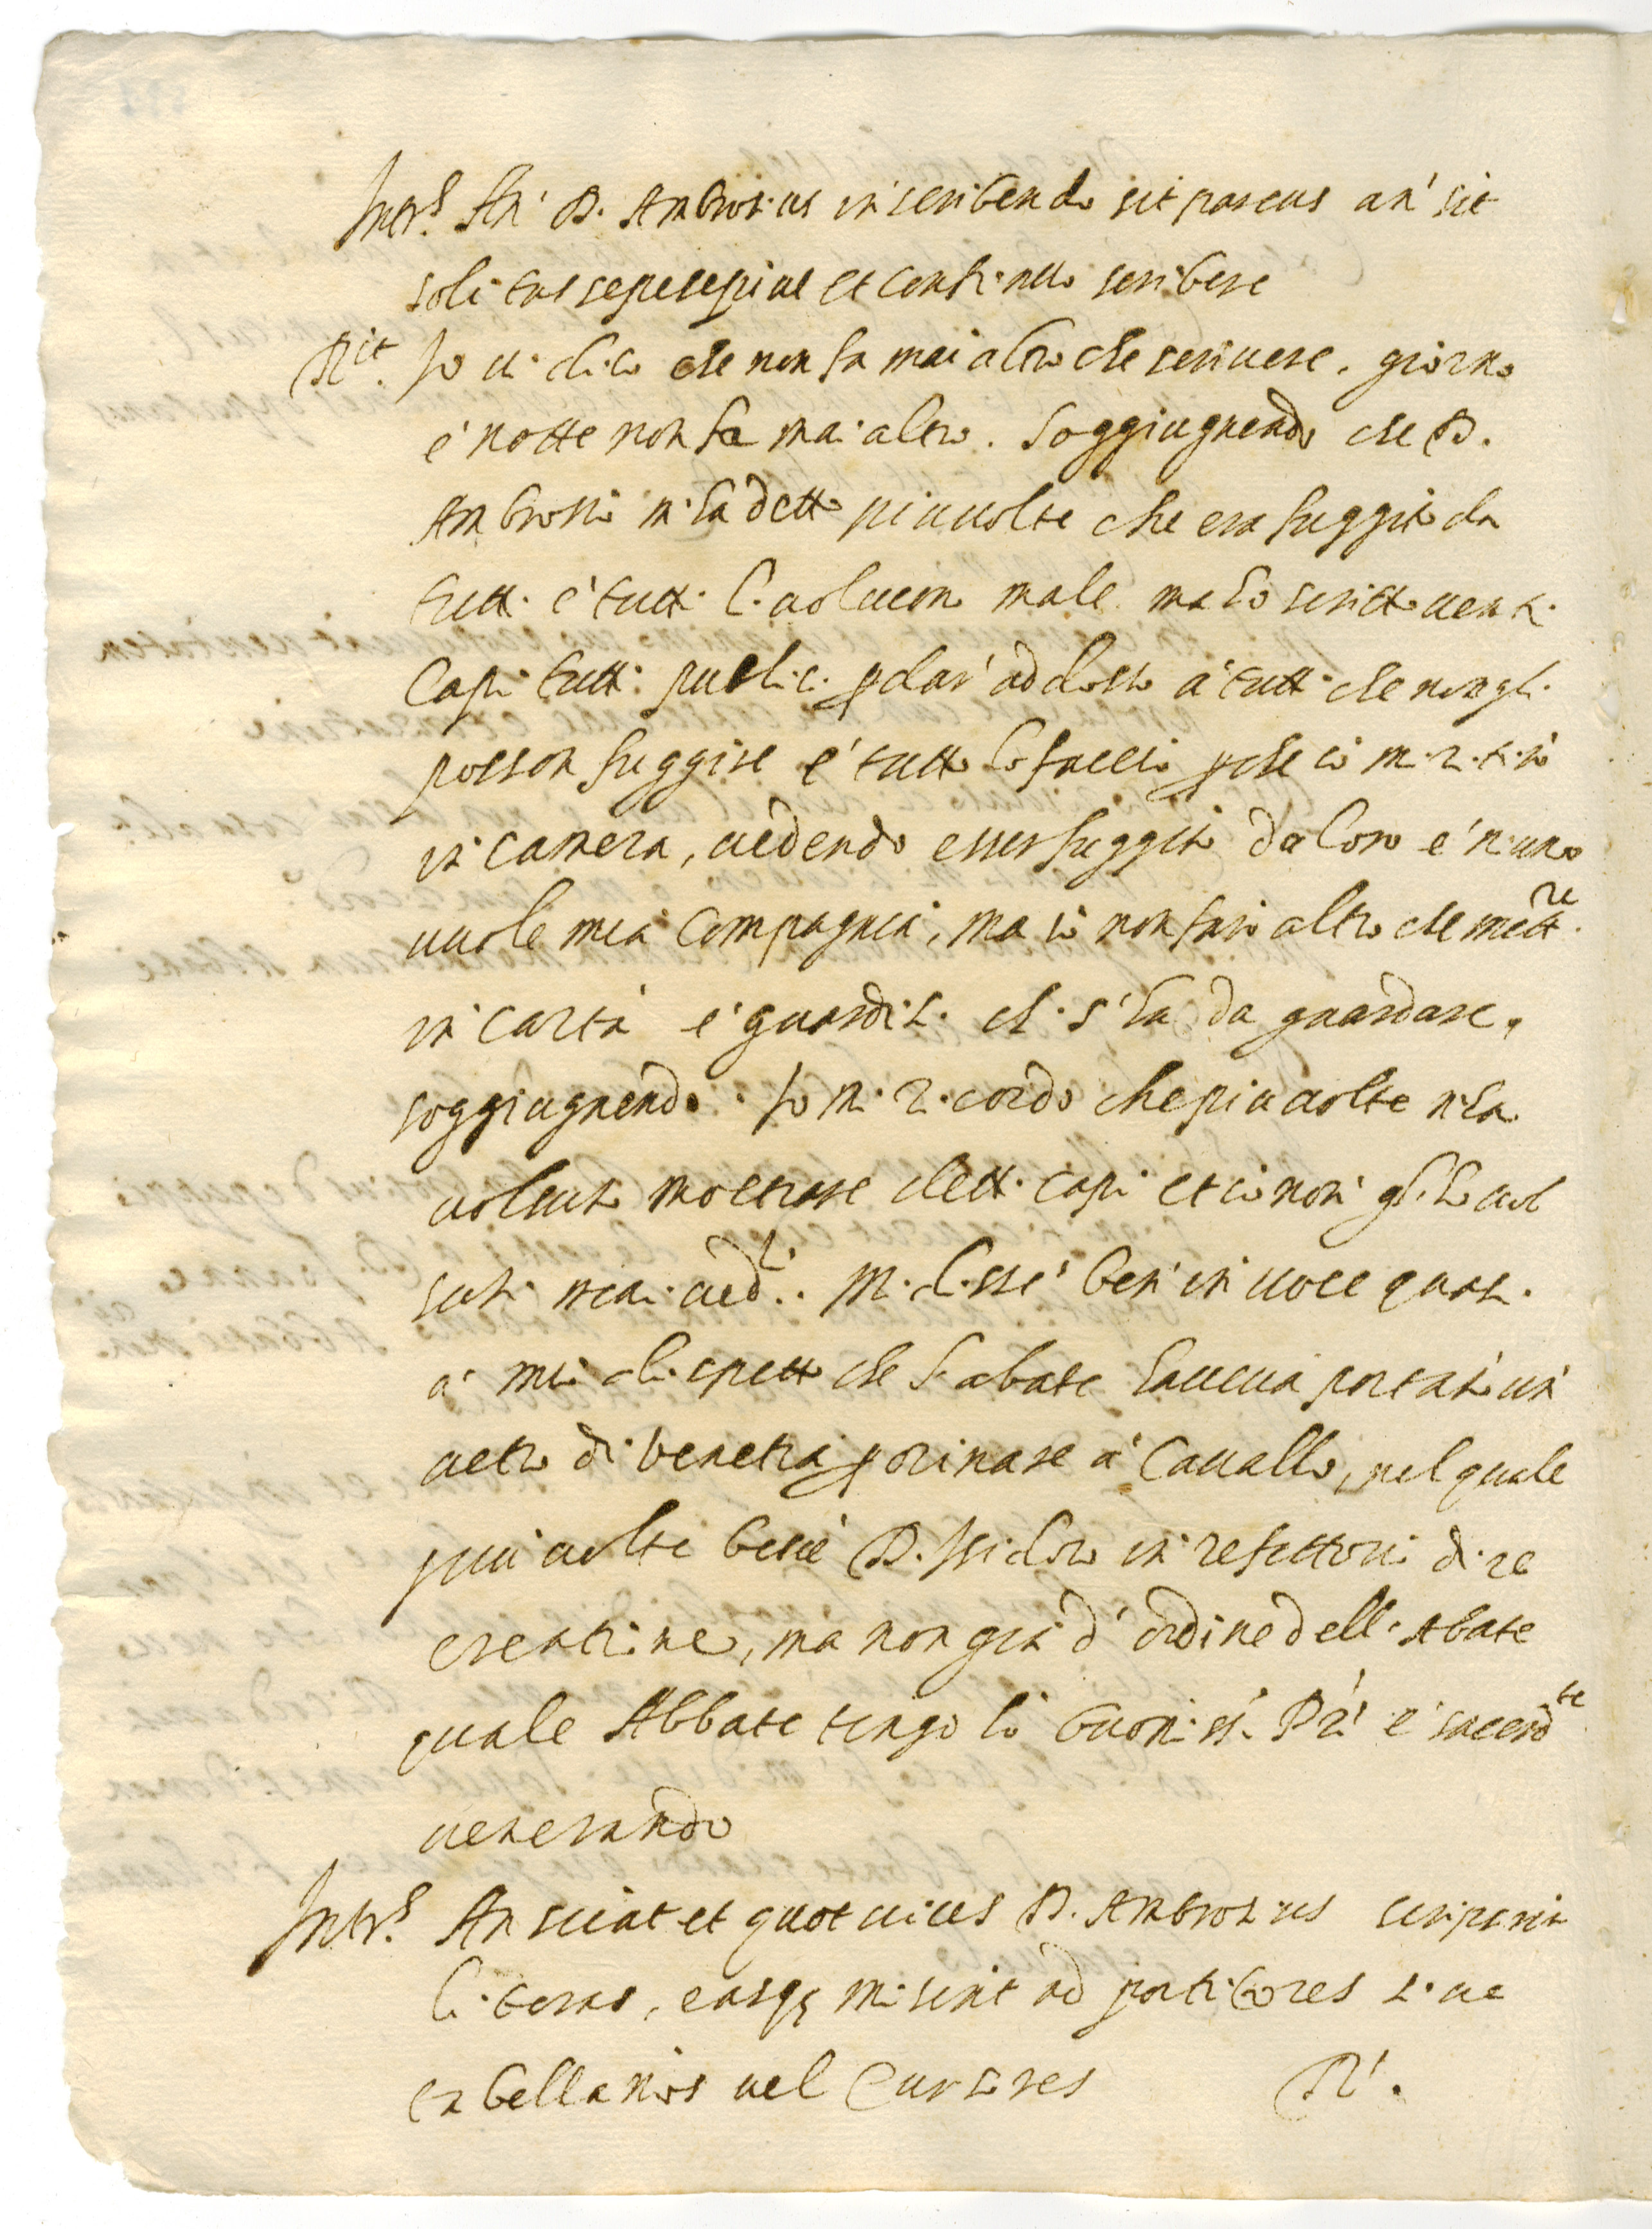 Intrs. An' D. Ambrosius in scribendo sit parcus an' sit
solitus sepe sepius et continuo scribere
Rit. Io vi dico che non fa mai altro che scrivere, giorno
e' notte non fa mai altro. Soggiugnendo che D.
Ambrosio m'ha detto piu volte che era fuggito da
tutti e' tutti li voleuon male ma ho scritto venti
Capi tutti publici p dar' addosso a' tutti che non gli
posson fuggire e' tutto lo faccio pche io mi ritiro
in camera, vedendo esser fuggito da loro e' niuno
vuole mia compagnia, ma io non faro altro che mettre
in carta e' guardisi chi s'ha da guardare,
soggiugnendo. Io mi ricordo che piu volte m'ha
voluto mostrare detti capi et io non' gli ho vol
suti mai vedli. Mi disse' ben' in voce quasi
a' mio dispetto che l'abate haueua portato un'
vetro di venetia p orinare a' Cavallo, nel quale
piu volte beve' D. Isidoro in refettorio di re
creatione, ma non gia d'ordine dell'Abate
quale Abbate tengo io buonissi. Pre' e' sacerdte
venerando
Intrs. An sciat et quot vices D. Ambrosius scripserit
literas, easq3 miserit ad portitores sive
tabellarios vel Cursores R'.